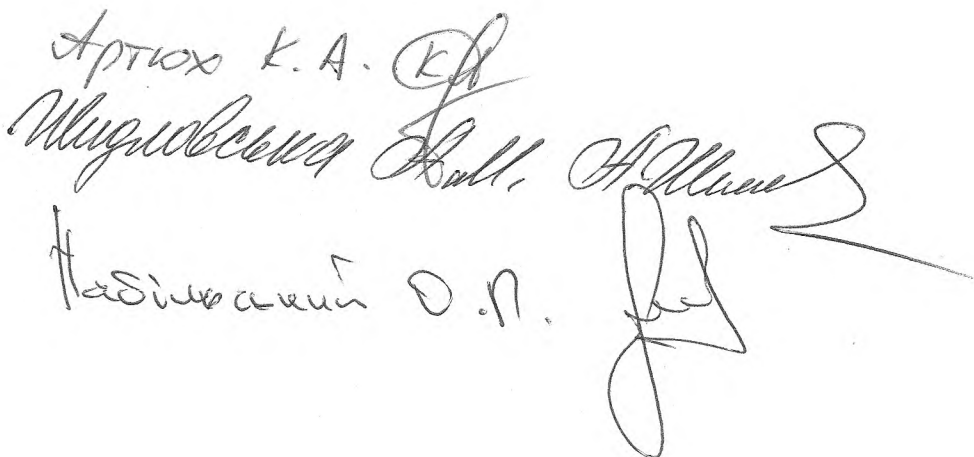 Артюх К. А.
Шидловська А.М.
Набільський О.П.